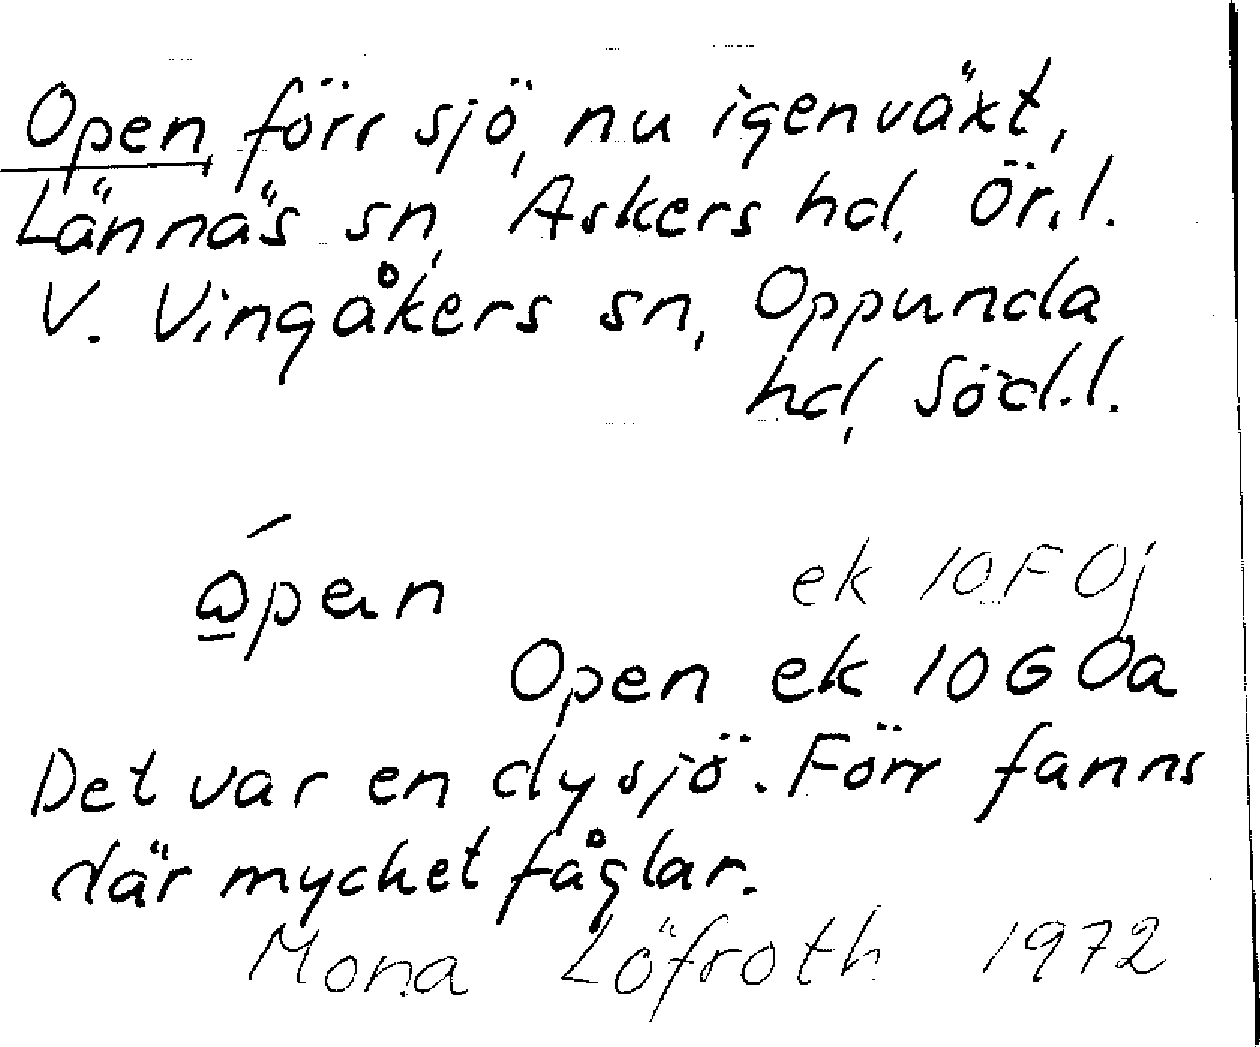 Open, förr sjö, nu igenväxt,
Lännäs sn, Askers hd, Ör.l.
V. Vingåkers sn, Oppunda
hd, Söd.l.
ek 10F 0j
Open ek 10G 0a
Det var en dysjö. Förr fanns
där mycket fåglar.
Mona Löfroth 1972